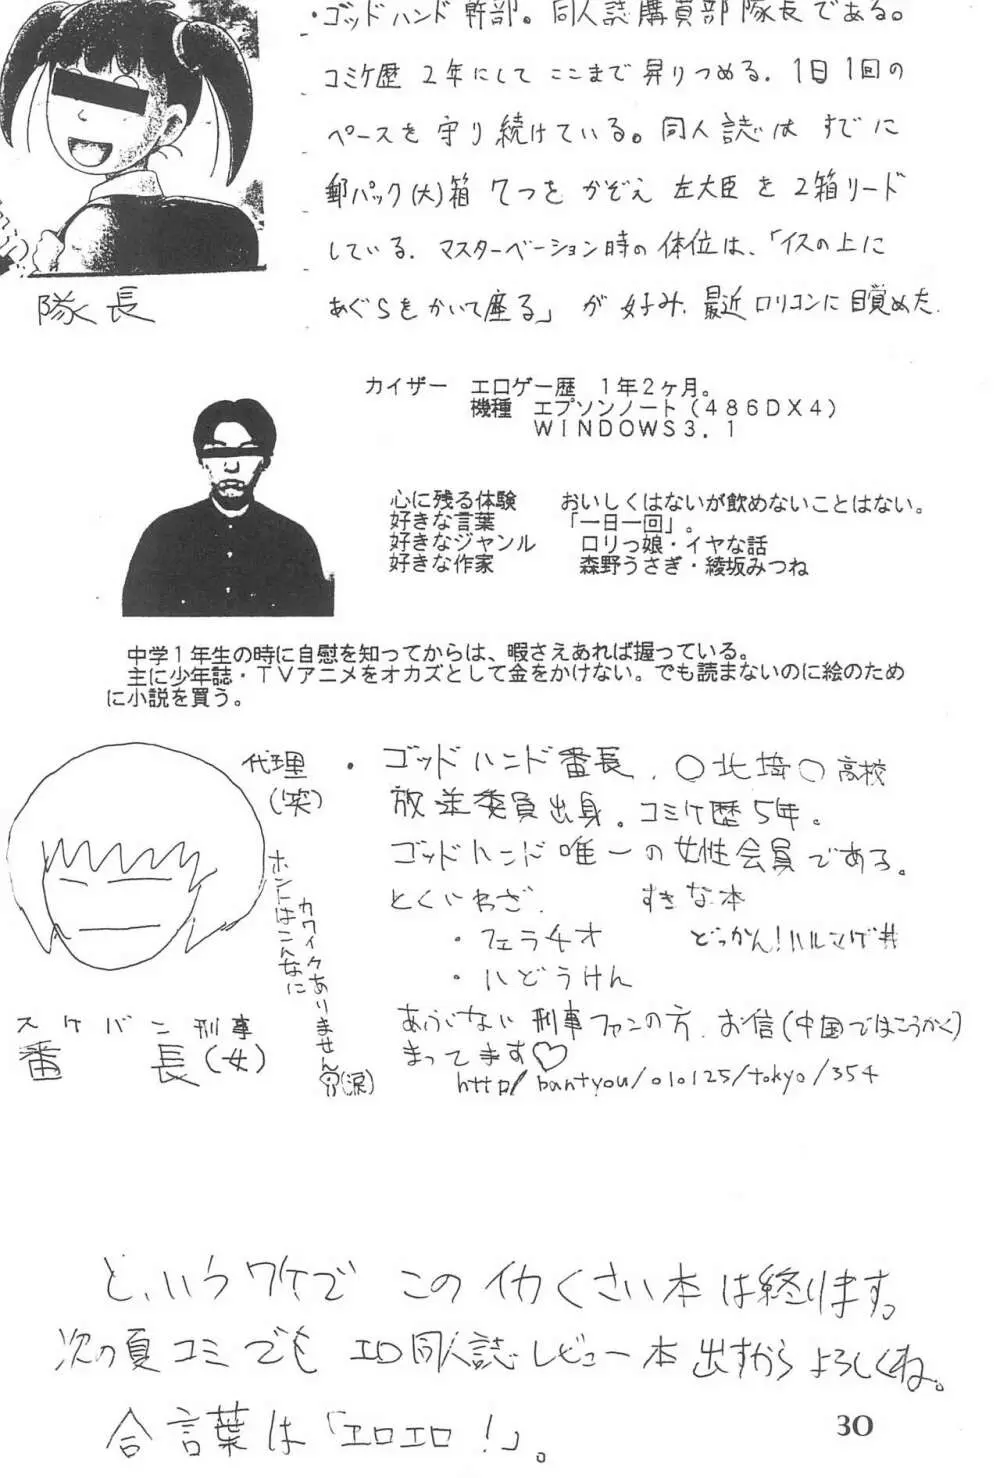 ・ゴッドハンド幹部。同人誌購買部隊長である。
コミケ歴2年にしてここまで昇りつめる。1日1回の
ペースを守り続けている。同人誌はすでに
郵パック(大)箱7つをかぞえ左大臣を2箱リード
している。マスターベーション時の体位は、「イスの上に
あぐらをかいて座る」が好み。最近ロリコンに目覚めた。
隊長
カイザー エロゲー歴 1年2ヶ月。
機種 エプソンノート(486DX4)
WINDOWS3.1
心に残る体験 おいしくはないが飲めないことはない。
好きな言葉 「一日一回」。
好きなジャンル ロリっ娘・イヤな話
好きな作家 森野うさぎ・綾坂みつね
中学1年生の時に自慰を知ってからは、暇さえあれば握っている。
主に少年誌・TVアニメをオカズとして金をかけない。でも読まないのに絵のため
に小説を買う。
代理
(笑)
ホントはこんなに
カワイクありません
(涙)
スケバン刑事
番長(女)
・ゴッドハンド番長。○北埼○高校
放送委員出身。コミケ歴5年。
ゴッドハンド唯一の女性会員である。
とくいわざ. すきな本
・フェラチオ どっかん!ハルマゲ丼
・ハどうけん
あぶない刑事ファンの方.お信(中国ではこうかく)
まってます♡
http/bantyou/010125/tokyo/354
と、いうワケでこのイカくさい本は終ります。
次の夏コミでもエロ同人誌レビュー本出すからよろしくね。
合言葉は「エロエロ!」。
30